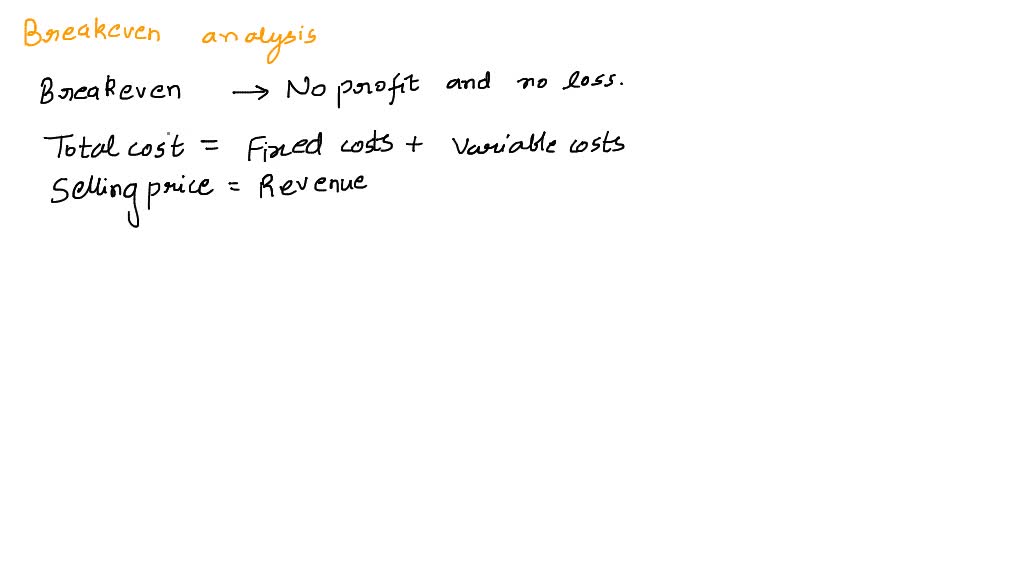 Breakeven analysis
Breakeven → No profit and no loss.
Total cost = Fixed costs + Variable costs
Selling price = Revenue